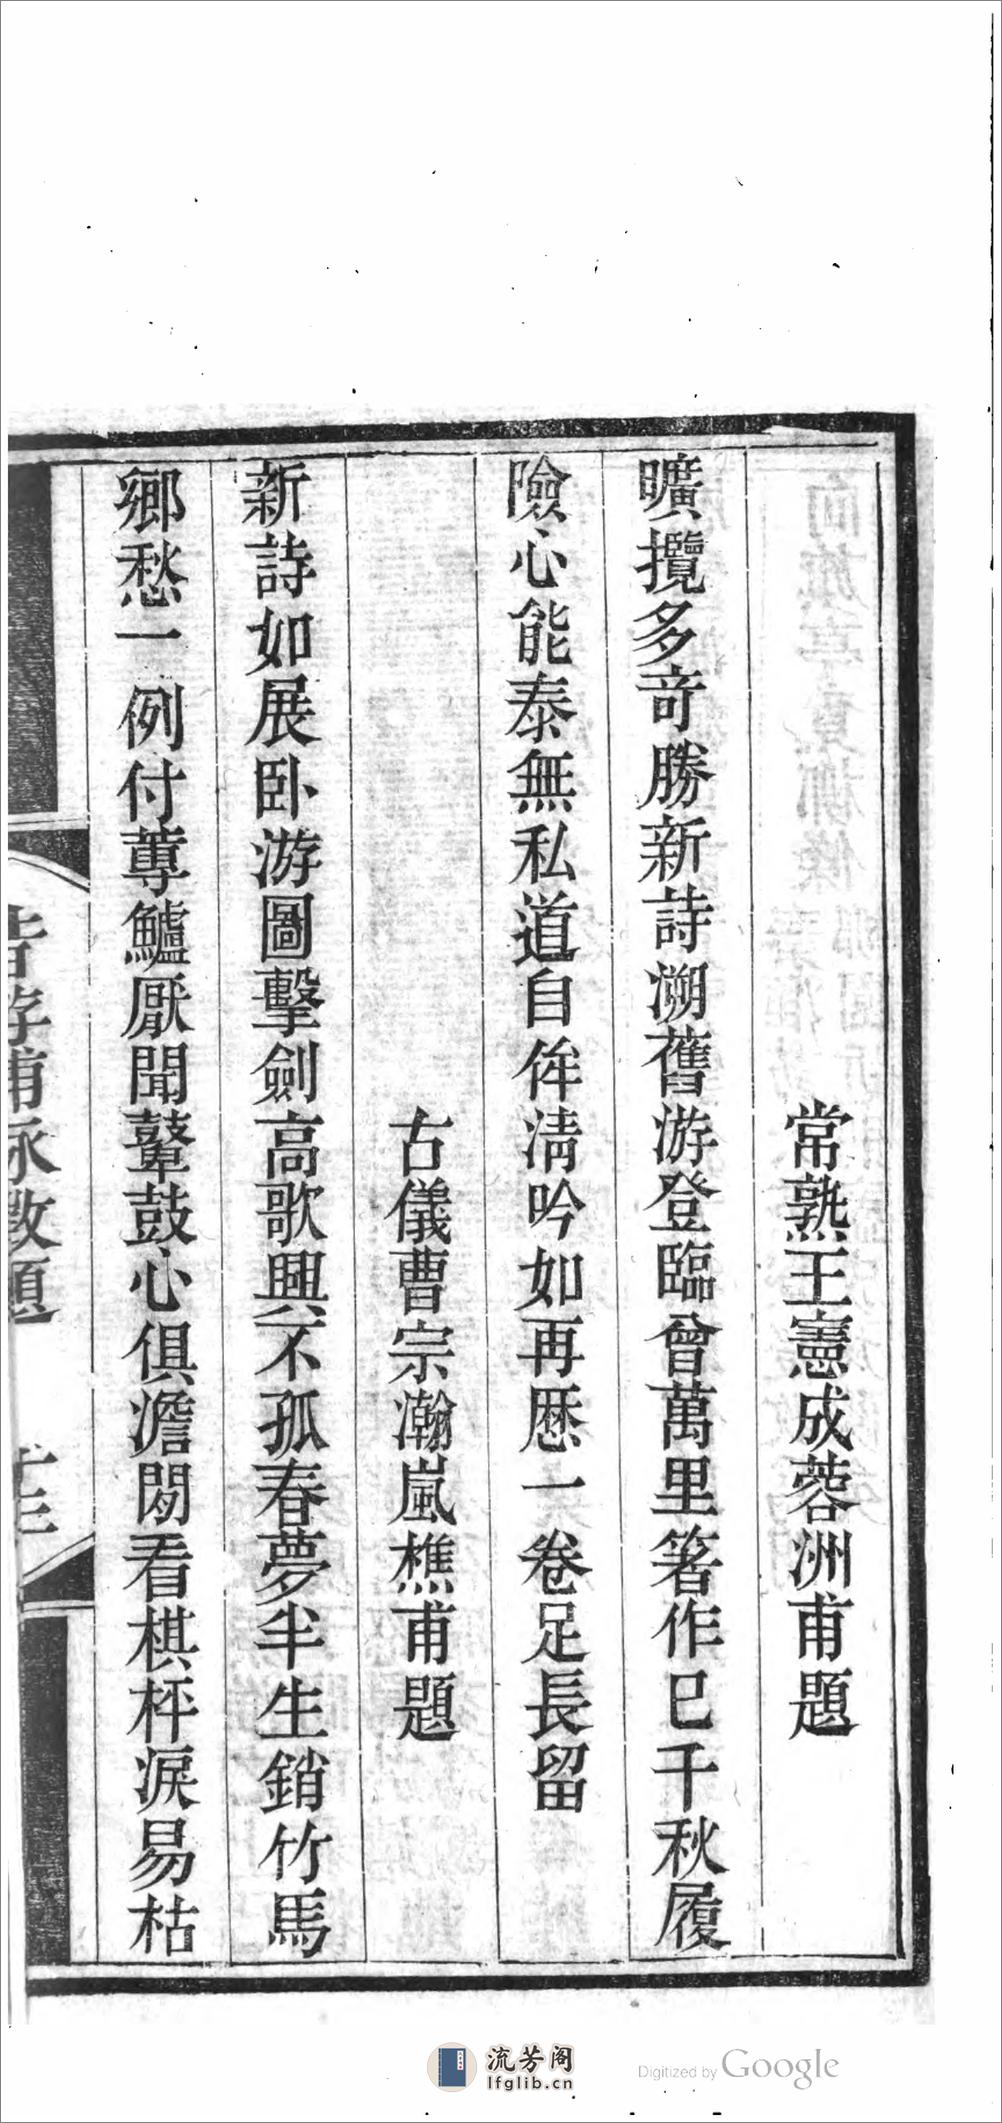 常熟王憲成蓉洲甫題
曠攬多奇勝新詩溯舊游登臨曾萬里箸作已千秋履
險心能泰無私道自侔淸吟如再歷一卷足長留
古儀曹宗瀚嵐樵甫題
新詩如展臥游圖擊劍高歌興不孤春夢半生銷竹馬
鄉愁一例付蓴鱸厭聞鼙鼓心俱澹閒看棋枰淚易枯
題
流芳阁
lfglib.cn
Digitized by Google